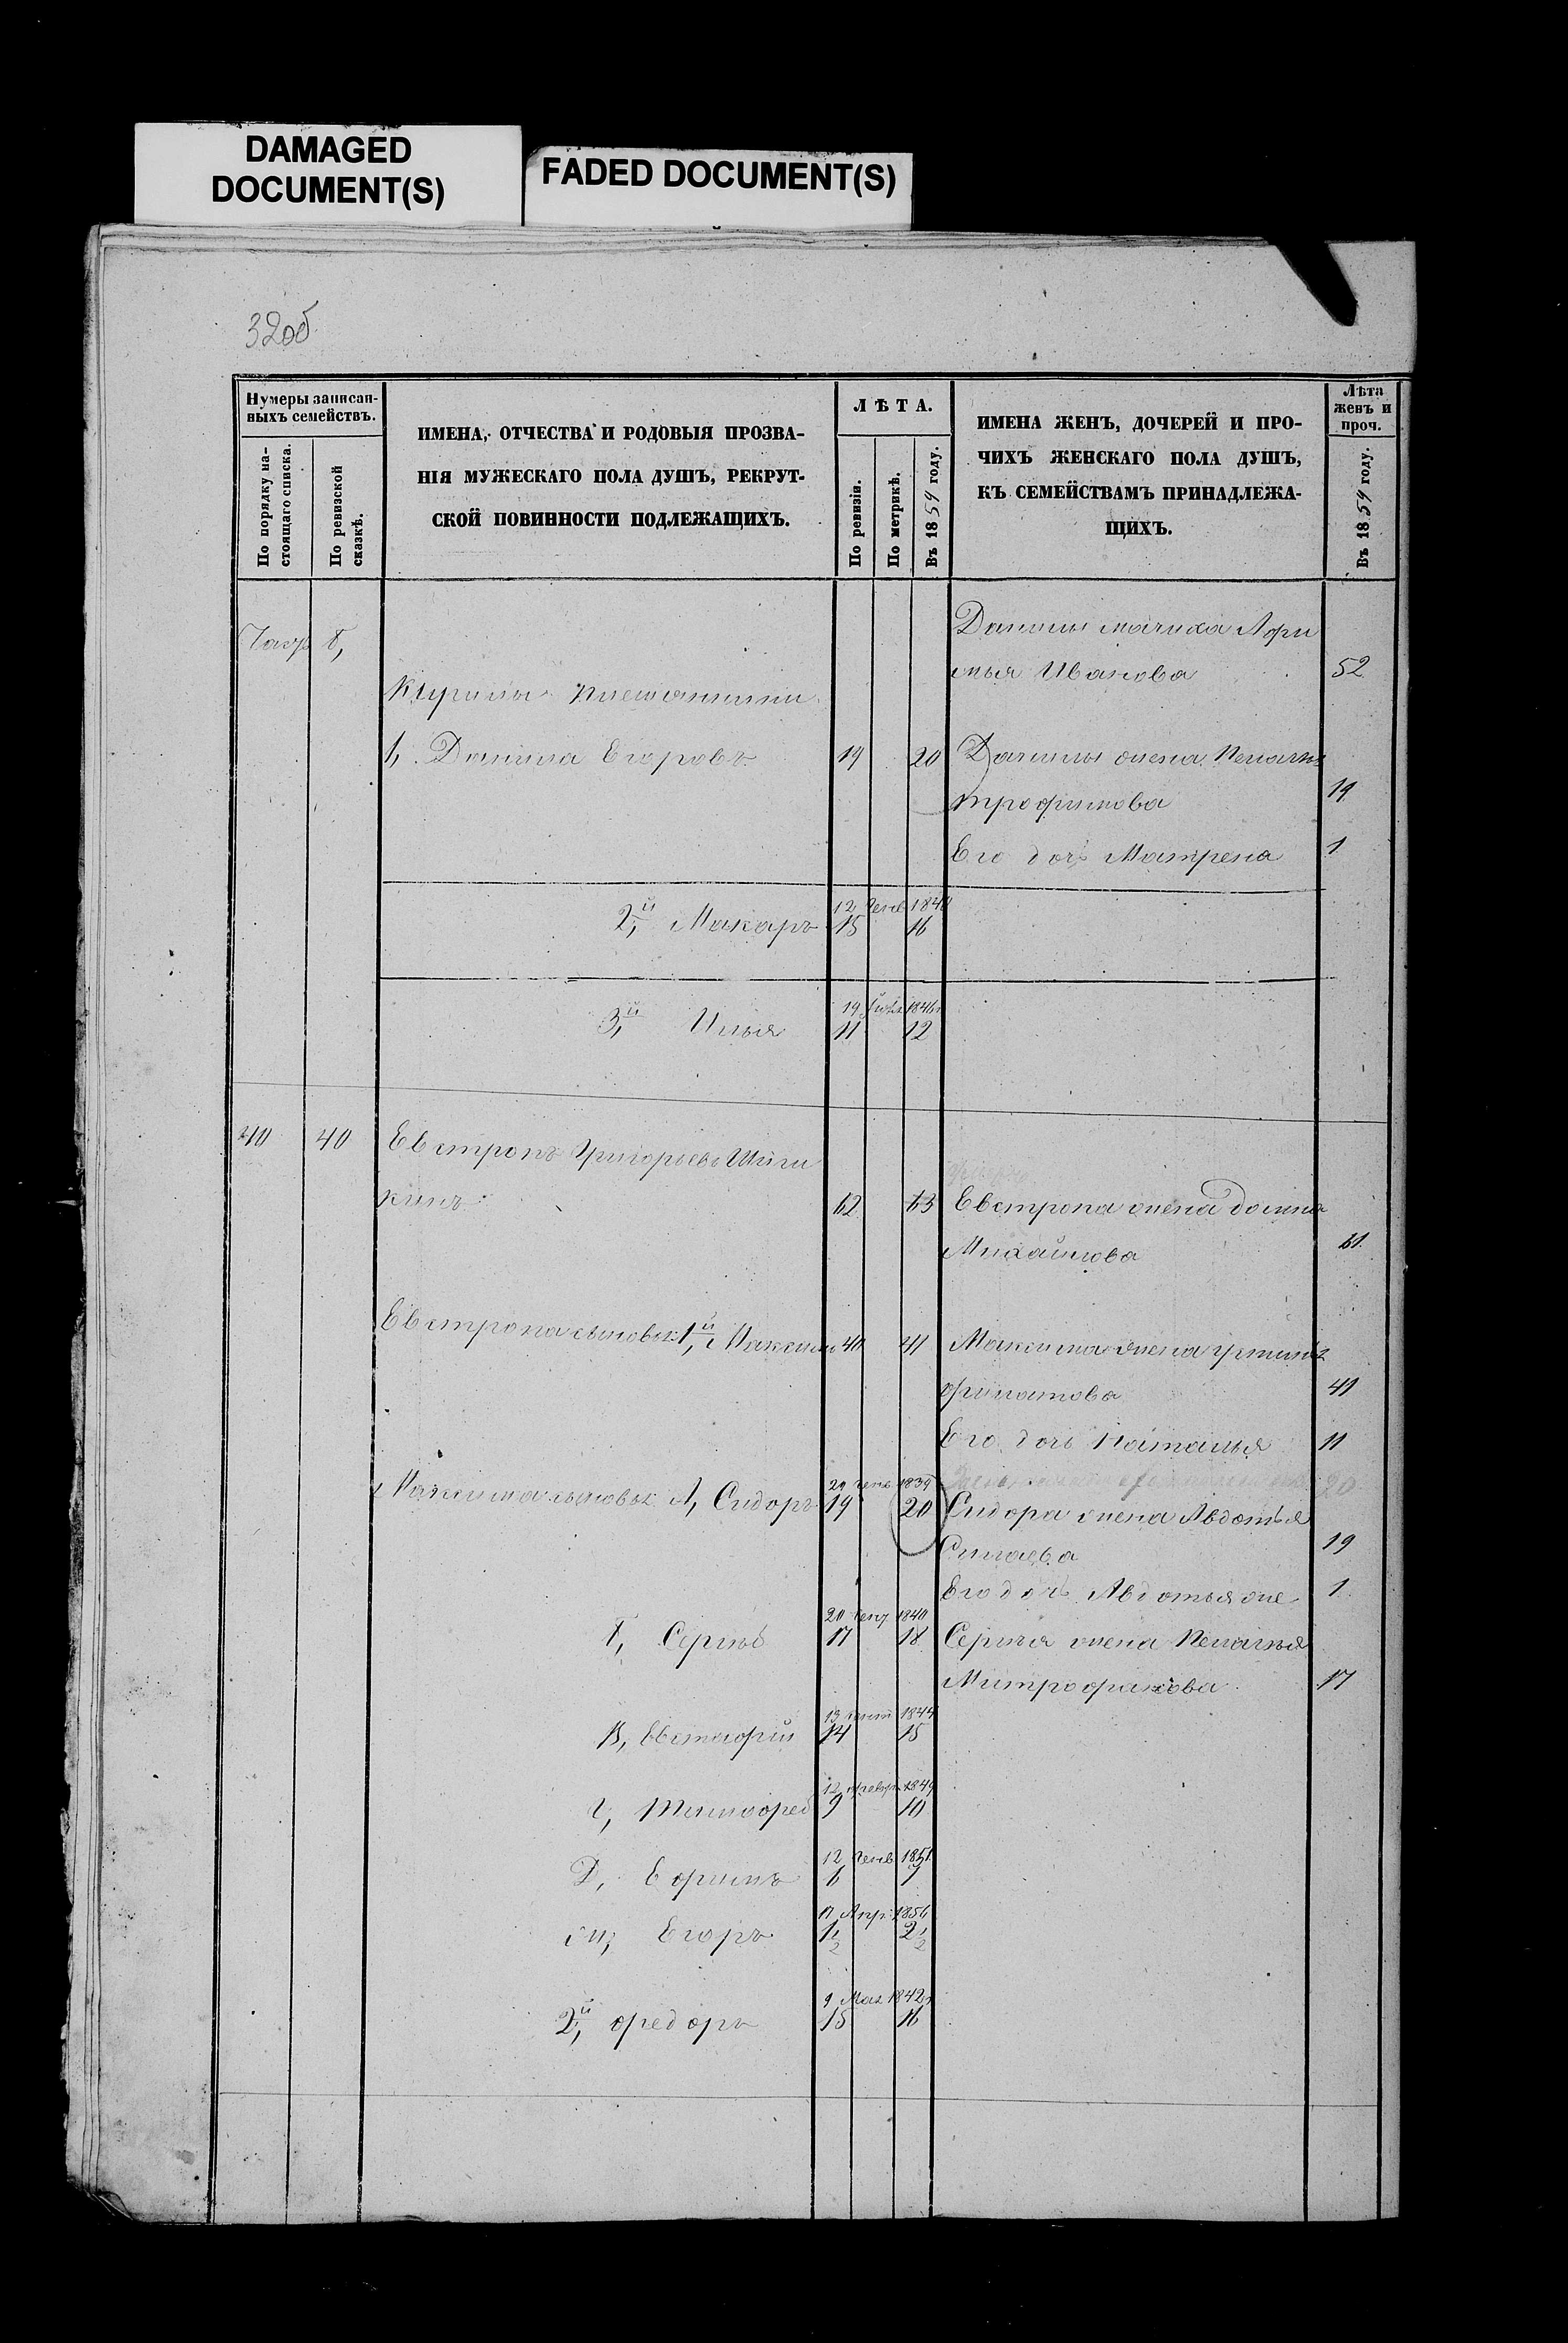 DAMAGED
DOCUMENT(S)
FADED DOCUMENT(S)
32об
Нумеры записан-
ныхъ семействъ.
По порядку на-
стоящаго списка.
По ревизской
сказкѣ.
ИМЕНА, ОТЧЕСТВА И РОДОВЫЯ ПРОЗВА-
НІЯ МУЖЕСКАГО ПОЛА ДУШЪ, РЕКРУТ-
СКОЙ ПОВИННОСТИ ПОДЛЕЖАЩИХЪ.
ЛѢТА.
По ревизіи.
По метрикѣ.
Въ 1859 году.
ИМЕНА ЖЕНЪ, ДОЧЕРЕЙ И ПРО-
ЧИХЪ ЖЕНСКАГО ПОЛА ДУШЪ,
КЪ СЕМЕЙСТВАМЪ ПРИНАДЛЕЖА-
ЩИХЪ.
Лѣта
женъ и
проч.
Въ 1859 году.
Данилы мачиха Афи
мья Иванова 52
Кирилы племянники
1, Данила Егоровъ 19 20 Данилы жена Пелагѣя
Трофимова 19
Его дочь Матрена 1
12 Генв 1843
2й, Макаръ 15 16
19 Іюля 1846
3й, Илья 11 12
40 40 Евстропъ Григорьевъ
кинъ 62 63 Евстропа жена Домна
Михайлова 61
Евстропа сыновья 1й, Максимъ 40 41 Максима жена Устинья
Филатова 41
Его дочь Наталья 11
20
Генв 1839
Максима сыновья А, Сидоръ 19 20 Сидора жена Авдотья
Силаева 19
Его дочь Авдотья же 1
20 1840
Б, Сергѣй 17 18 Сергѣя жена Пелагѣя
Митрофанова 17
13 1844
В, Евстафій 14 15
12 февр 1849
Г, Тимофей 9 10
12 Генв 1851
Д, Ефимъ 6 7
Апр 1856
Егоръ 1½ 2½
9 Мая 1842
2й, Федоръ 15 16